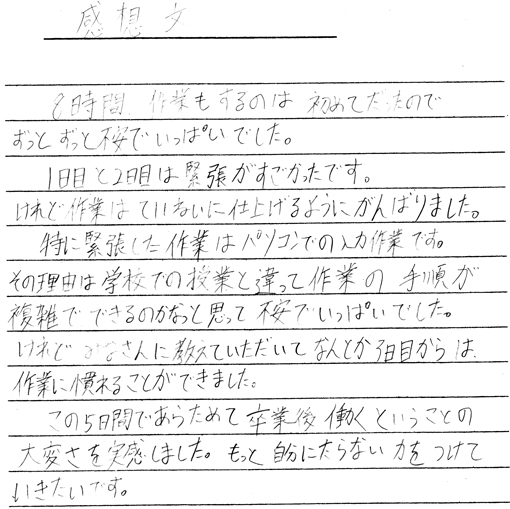 感想文
8時間、作業もするのは初めてだったので
ずっとずっと不安でいっぱいでした。
1日目と2日目は緊張がすごかったです。
けれど作業はていねいに仕上げるようにがんばりました。
特に緊張した作業はパソコンでの入力作業です。
その理由は学校での授業と違って作業の手順が
複雑でできるのかなっと思って不安でいっぱいでした。
けれどみなさんに教えていただいてなんとか3日目からは
作業に慣れることができました。
この5日間であらためて卒業後働くということの
大変さを実感しました。もっと自分にたらない力をつけて
いきたいです。